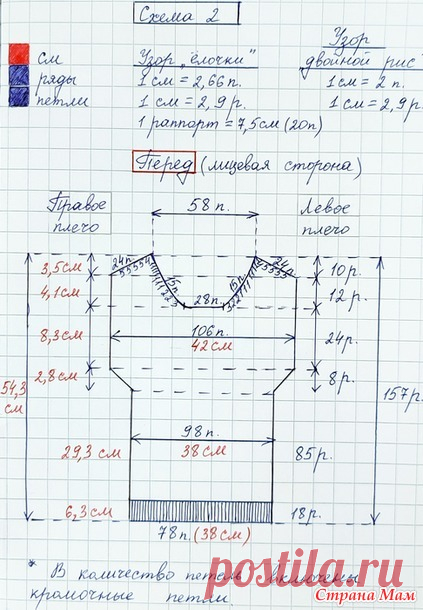 Схема 2
см
ряды
петли
Узор "ёлочки"
1 см = 2,66 п.
1 см = 2,9 р.
1 раппорт = 7,5 см (20 п)
Узор
"двойной рис"
1 см = 2 п.
1 см = 2,9 р.
Перед (лицевая сторона)
Правое
плечо
58 п.
Левое
плечо
24 п.
24 п.
3,5 см
10 р.
15 п.
15 п.
4,1 см
12 р.
28 п.
8,3 см
106 п.
42 см
24 р.
2,8 см
8 р.
54,3
см
157 р.
98 п.
38 см
29,3 см
85 р.
6,3 см
18 р.
78 п. (38 см)
* В количество петель включены
кромочные петли.
postila.ru
Страна Мам